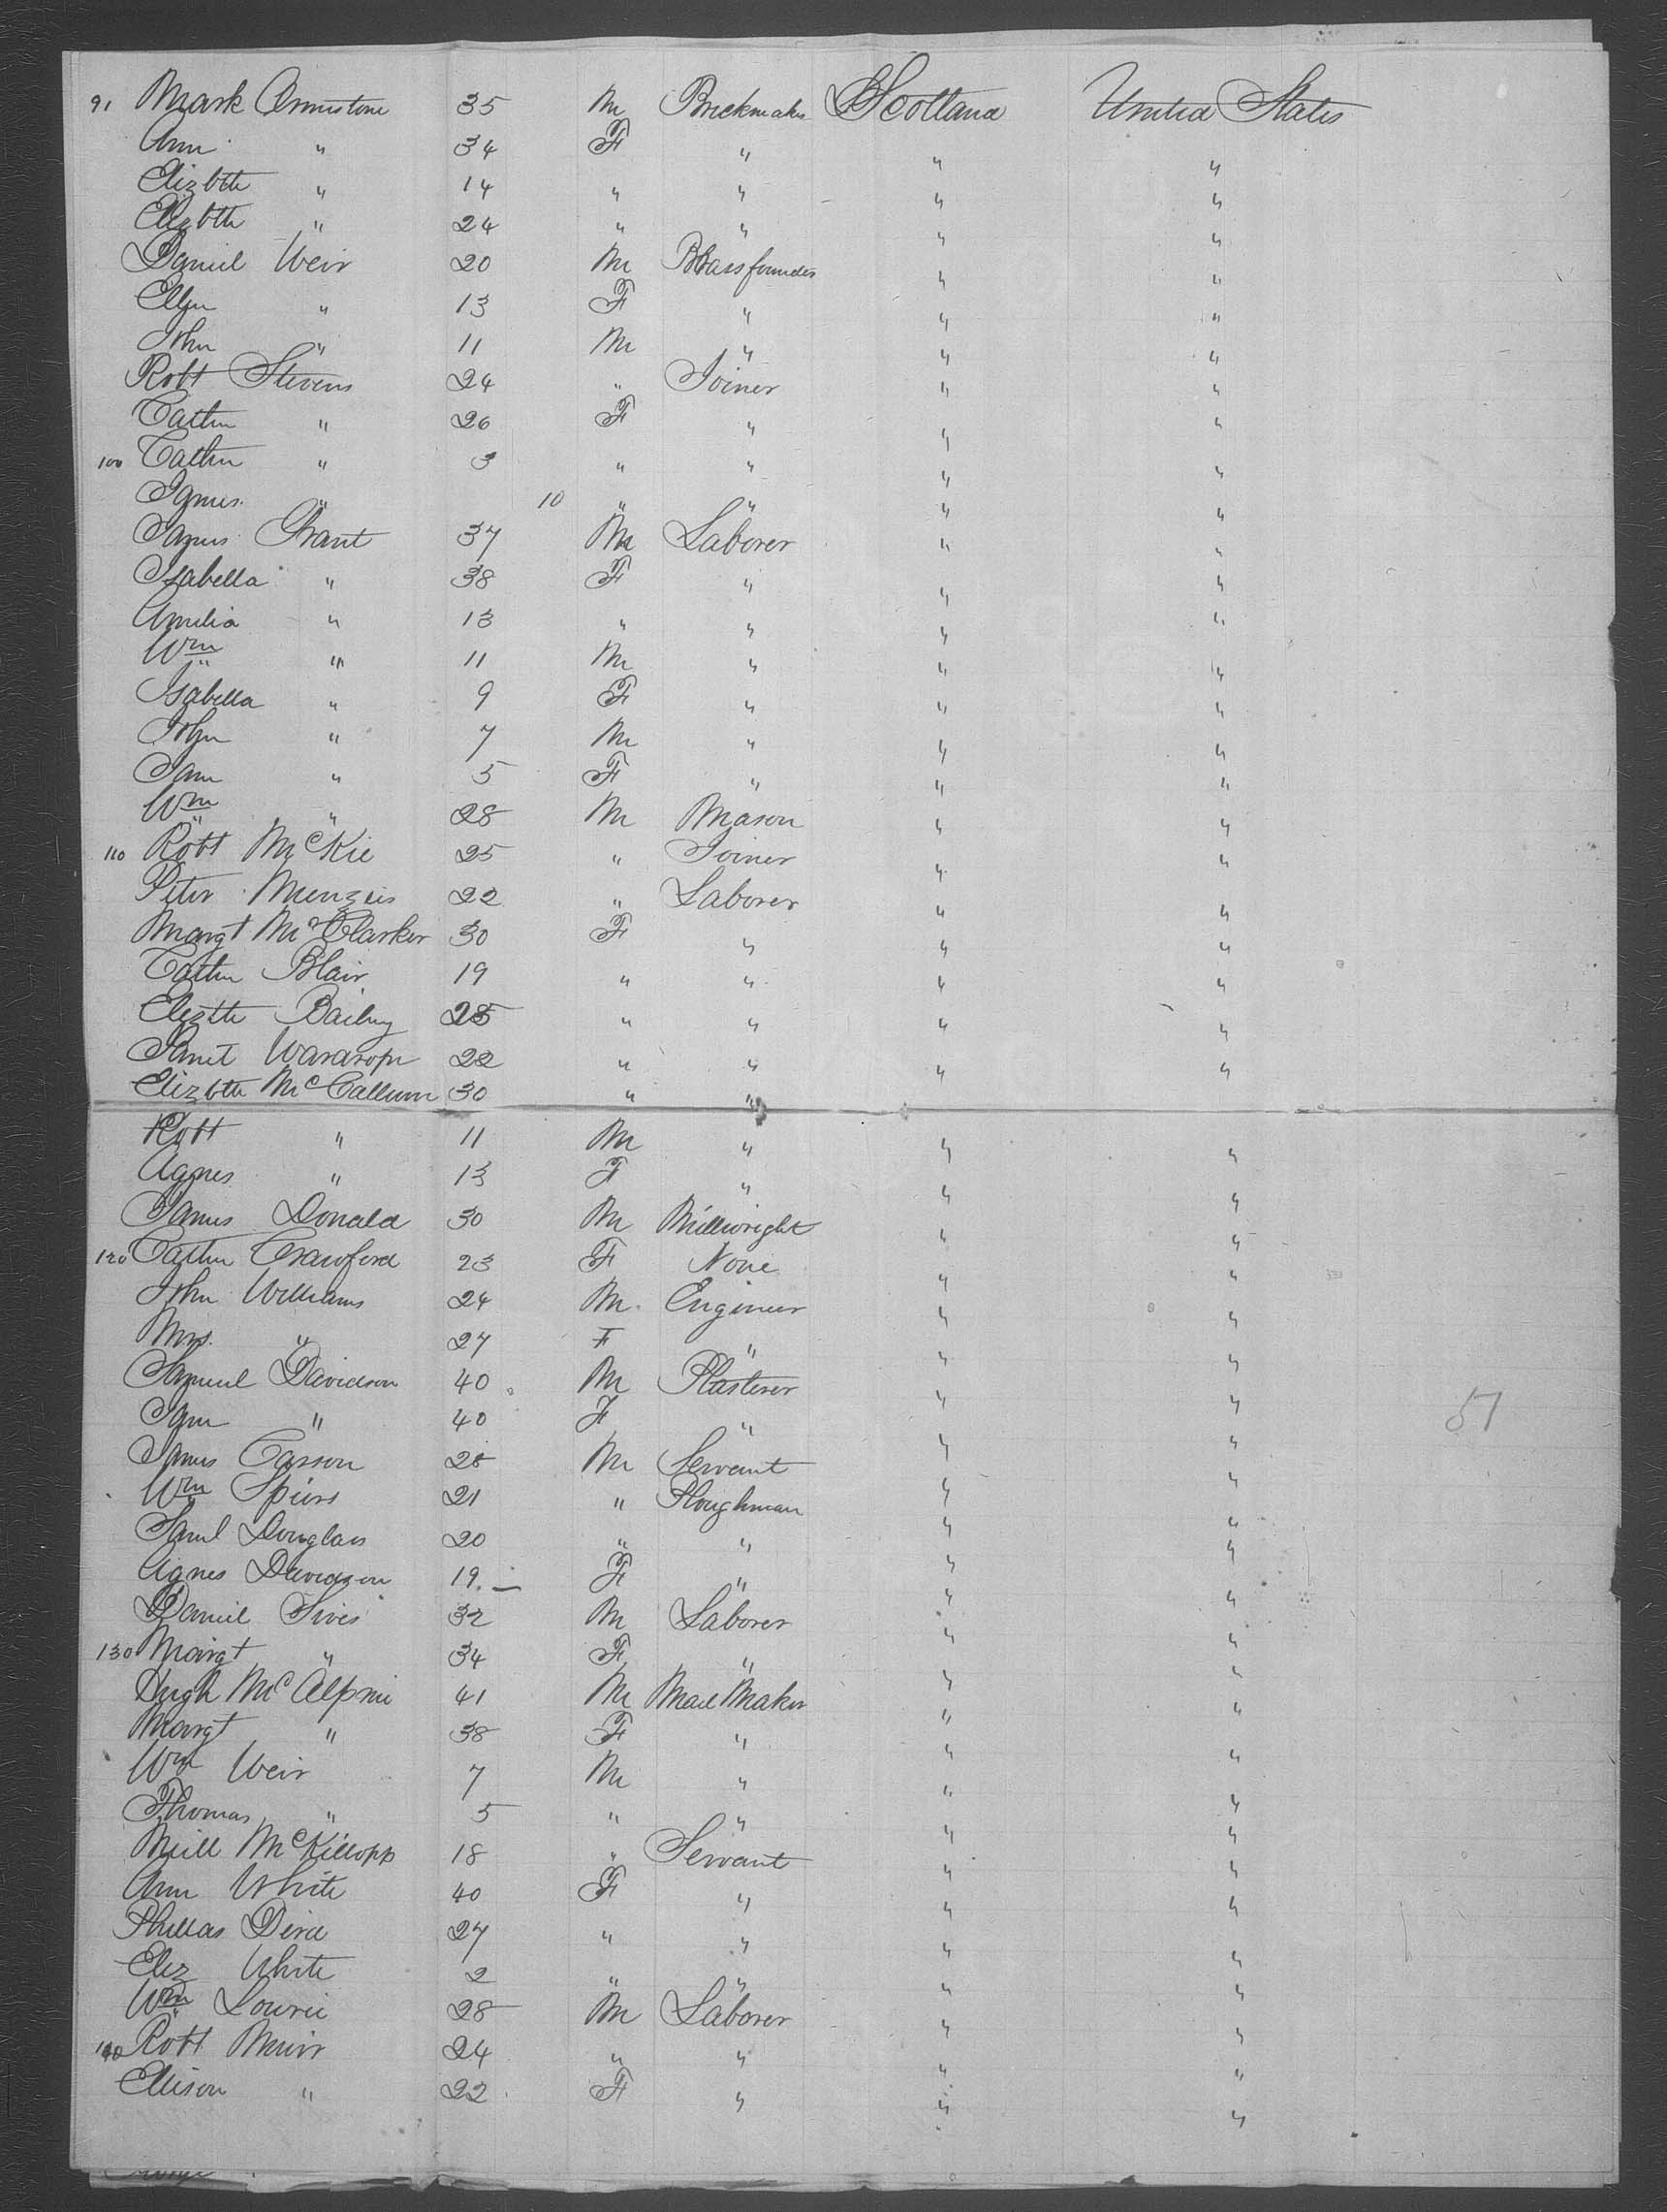 91 Mark Armistone 35 M Brickmaker Scotland United States
Ann " 34 F " " "
Elizbth " 14 " " " "
Elizbth " 24 " " " "
Daniel Weir 20 M Brassfounder " "
Ellen " 13 F " " "
John " 11 M " " "
Robt Stevens 24 " Joiner " "
Cathn " 26 F " " "
100 Cathn " 3 " " " "
Agnes " 10 " " " "
James Grant 37 M Laborer " "
Isabella " 38 F " " "
Amelia " 13 " " " "
Wm " 11 M " " "
Isabella " 9 F " " "
John " 7 M " " "
Jane " 5 F " " "
Wm " 28 M Mason " "
110 Robt McKie 25 " Joiner " "
Peter Menzies 22 " Laborer " "
Margt McClarker 30 F " " "
Cathn Blair 19 " " " "
Elizbth Bailey 25 " " " "
Janet Wardrope 22 " " " "
Elizbth McCallum 30 " "
Robt " 11 M " " "
Agnes " 13 F " " "
James Donald 30 M Millwright " "
120 Cathn Crawford 23 F None " "
John Williams 24 M Engineer " "
Mrs. " 27 F " " "
Samuel Davidson 40 M Plasterer " "
Jane " 40 F " " "
James Casson 28 M Servant " "
Wm Spiers 21 " Ploughman " "
Saml Douglass 20 " " " "
Agnes Davidson 19 F " " "
Daniel Sives 32 M Laborer " "
130 Margt " 34 F " " "
Hugh McAlpine 41 M Nail Maker " "
Margt " 38 F " " "
Wm Weir 7 M " " "
Thomas " 5 " " " "
Neill McKillopp 18 " Servant " "
Ann White 40 F " " "
Phillas Dird 27 " " " "
Eliz White 2 " " " "
Wm Lowrie 28 M Laborer " "
140 Robt Muir 24 " " " "
Ellison " 22 F " " "
57